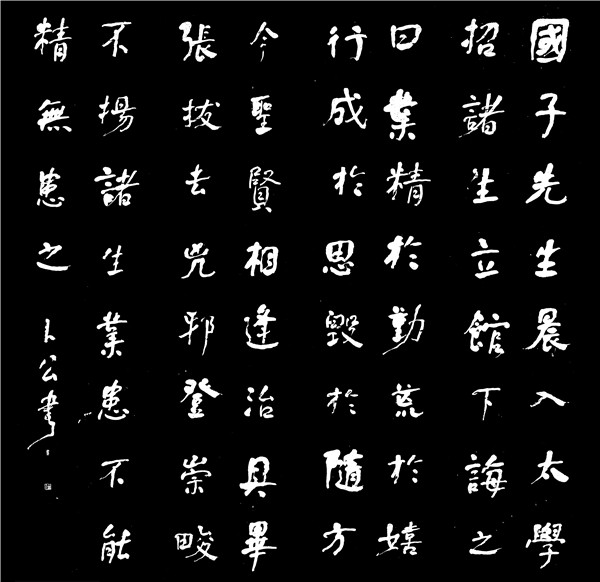 國子先生晨入太學
招諸生立館下誨之
曰業精於勤荒於嬉
行成於思毀於隨方
今聖賢相逢治具畢
張拔去兇邪登崇畯
不揚諸生業患不能
精無患之
卜公書